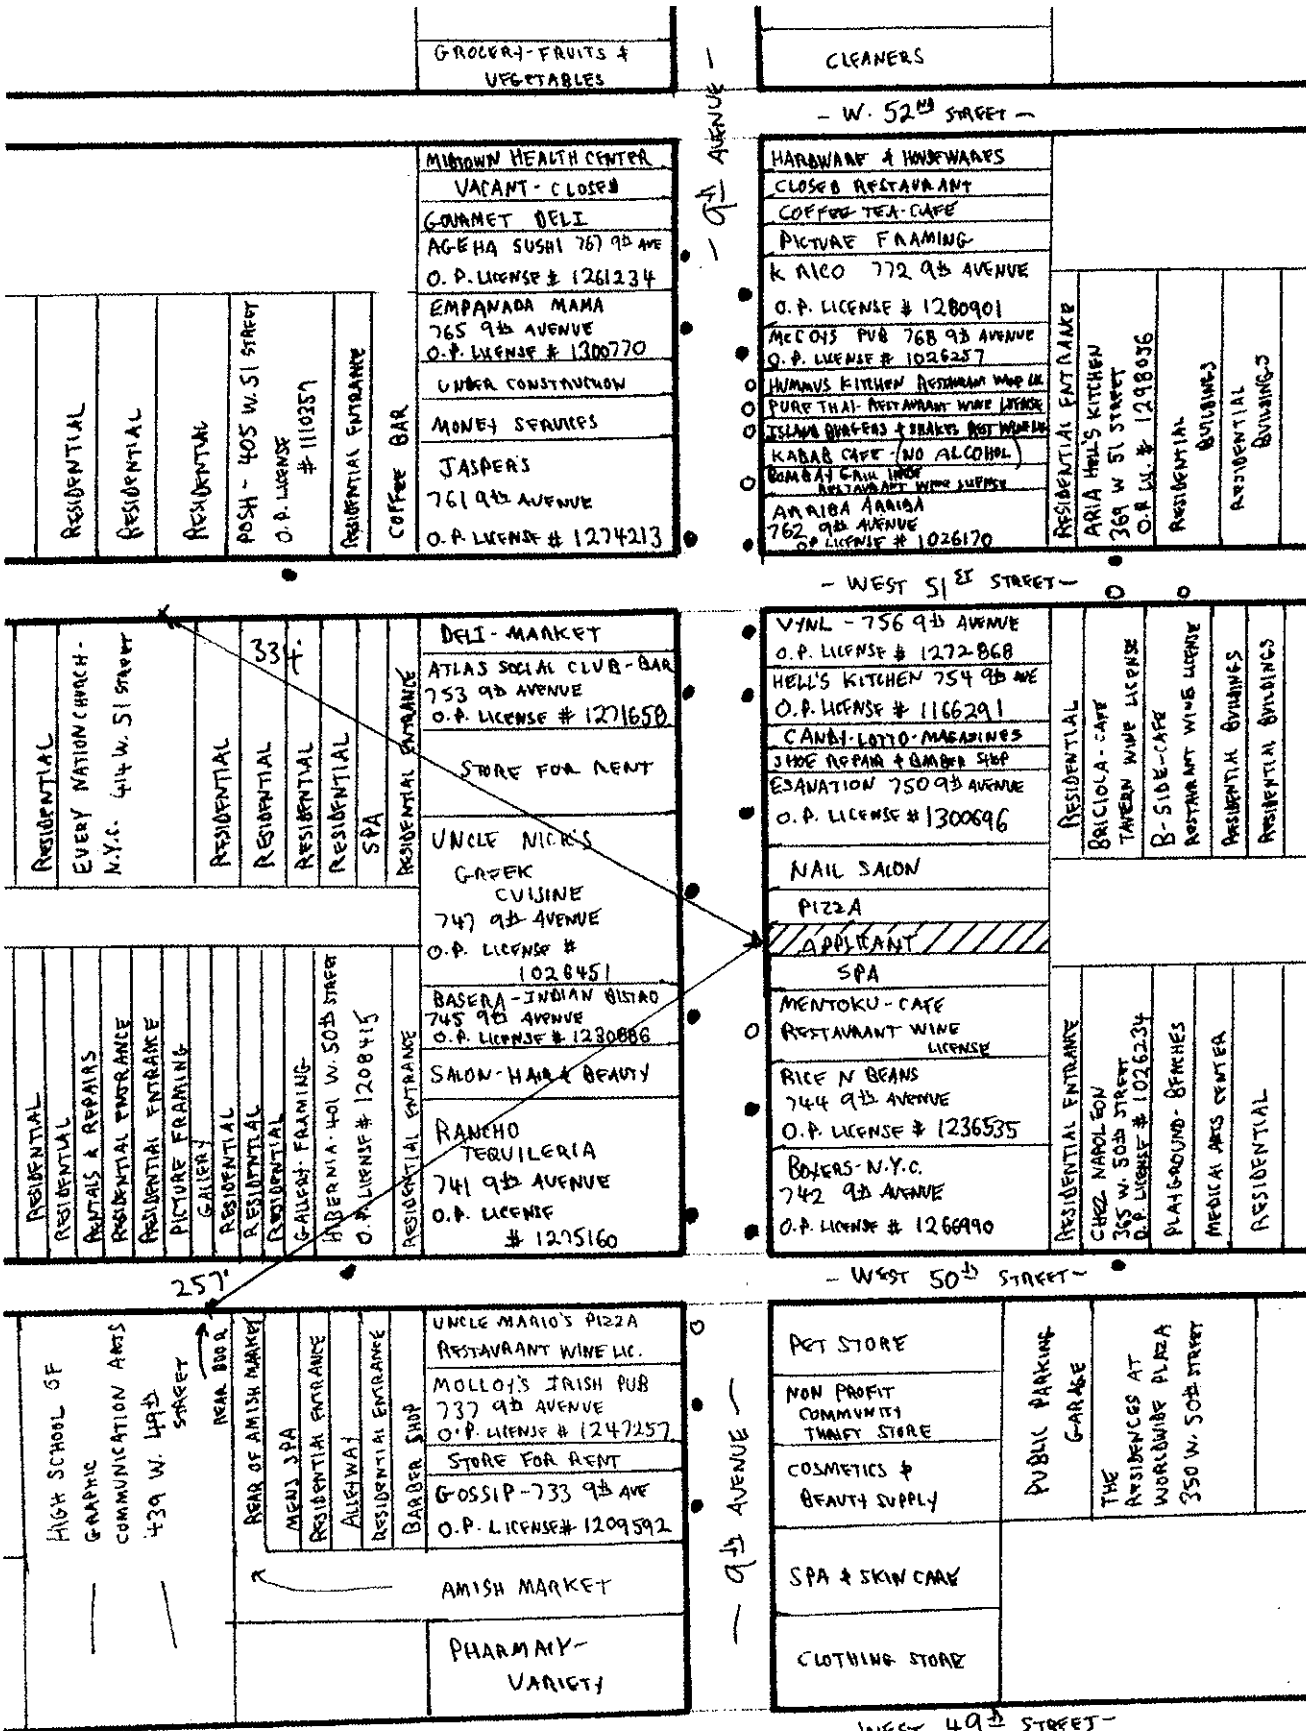 GROCERY-FRUITS &
VEGETABLES
- 9th AVENUE -
CLEANERS
- W. 52ND STREET -
MIDTOWN HEALTH CENTER
VACANT - CLOSED
GOURMET DELI
AGEHA SUSHI 767 9th AVE
O.P. LICENSE # 1261234
EMPANADA MAMA
765 9th AVENUE
O.P. LICENSE # 1300770
UNDER CONSTRUCTION
MONEY SERVICES
JASPER'S
761 9th AVENUE
O.P. LICENSE # 1274213
RESIDENTIAL
RESIDENTIAL
RESIDENTIAL
POSH - 405 W. 51 STREET
O.P. LICENSE
# 1110357
RESIDENTIAL ENTRANCE
COFFEE BAR
HARDWARE & HOUSEWARES
CLOSED RESTAURANT
COFFEE TEA-CAFE
PICTURE FRAMING
K RICO 772 9th AVENUE
O.P. LICENSE # 1280901
McCOYS PUB 768 9th AVENUE
O.P. LICENSE # 1026257
HUMMUS KITCHEN RESTAURANT WINE LIC
PURE THAI- RESTAURANT WINE LICENSE
ISLAND BURGERS & SHAKES REST WINE LIC
KABAB CAFE - (NO ALCOHOL)
BOMBAY GRILL
RESTAURANT WINE LICENSE
ARRIBA ARRIBA
762 9th AVENUE
OP LICENSE # 1026170
RESIDENTIAL ENTRANCE
ARIA HELL'S KITCHEN
369 W 51 STREET
O.P. LIC. # 1298036
RESIDENTIAL
BUILDINGS
RESIDENTIAL
BUILDINGS
- WEST 51 ST STREET -
RESIDENTIAL
EVERY NATION CHURCH -
N.Y.C. 414 W. 51 STREET
RESIDENTIAL
334'
RESIDENTIAL
RESIDENTIAL
RESIDENTIAL
SPA
RESIDENTIAL ENTRANCE
DELI - MARKET
ATLAS SOCIAL CLUB - BAR
753 9th AVENUE
O.P. LICENSE # 1271658
STORE FOR RENT
UNCLE NICK'S
GREEK
CUISINE
747 9th AVENUE
O.P. LICENSE #
1026451
BASERA - INDIAN BISTRO
745 9th AVENUE
O.P. LICENSE # 1230886
SALON - HAIR & BEAUTY
RANCHO
TEQUILERIA
741 9th AVENUE
O.P. LICENSE
# 1275160
VYNL - 756 9th AVENUE
O.P. LICENSE # 1272868
HELL'S KITCHEN 754 9th AVE
O.P. LICENSE # 1166291
CANDY-LOTTO-MAGAZINES
SHOE REPAIR & BARBER SHOP
ESANATION 750 9th AVENUE
O.P. LICENSE # 1300696
NAIL SALON
PIZZA
APPLICANT
SPA
MENTOKU - CAFE
RESTAURANT WINE
LICENSE
RICE N BEANS
744 9th AVENUE
O.P. LICENSE # 1236535
BOXERS - N.Y.C.
742 9th AVENUE
O.P. LICENSE # 1266990
RESIDENTIAL
BRICIOLA - CAFE
TAVERN WINE LICENSE
B-SIDE-CAFE
RESTAURANT WINE LICENSE
RESIDENTIAL BUILDINGS
RESIDENTIAL BUILDINGS
RESIDENTIAL
RESIDENTIAL
RENTALS & REPAIRS
RESIDENTIAL ENTRANCE
RESIDENTIAL ENTRANCE
PICTURE FRAMING
GALLERY
RESIDENTIAL
RESIDENTIAL
RESIDENTIAL
GALLERY - FRAMING
HIBERNIA - 401 W. 50th STREET
O.P. LICENSE # 1208415
RESIDENTIAL ENTRANCE
RESIDENTIAL ENTRANCE
CHEZ NAPOLEON
365 W. 50th STREET
O.P. LICENSE # 1026234
PLAYGROUND - BENCHES
MEDICAL ARTS CENTER
RESIDENTIAL
257'
- WEST 50th STREET -
HIGH SCHOOL OF
GRAPHIC
COMMUNICATION ARTS
439 W. 49th
STREET
REAR DOOR
REAR OF AMISH MARKET
MENS SPA
RESIDENTIAL ENTRANCE
ALLEYWAY
RESIDENTIAL ENTRANCE
BARBER SHOP
UNCLE MARIO'S PIZZA
RESTAURANT WINE LIC.
MOLLOY'S IRISH PUB
737 9th AVENUE
O.P. LICENSE # 1247257
STORE FOR RENT
GOSSIP - 733 9th AVE
O.P. LICENSE # 1209592
AMISH MARKET
PHARMACY -
VARIETY
- 9th AVENUE -
PET STORE
NON PROFIT
COMMUNITY
THRIFT STORE
COSMETICS &
BEAUTY SUPPLY
SPA & SKIN CARE
CLOTHING STORE
PUBLIC PARKING
GARAGE
THE
RESIDENCES AT
WORLDWIDE PLAZA
350 W. 50th STREET
WEST 49th STREET -